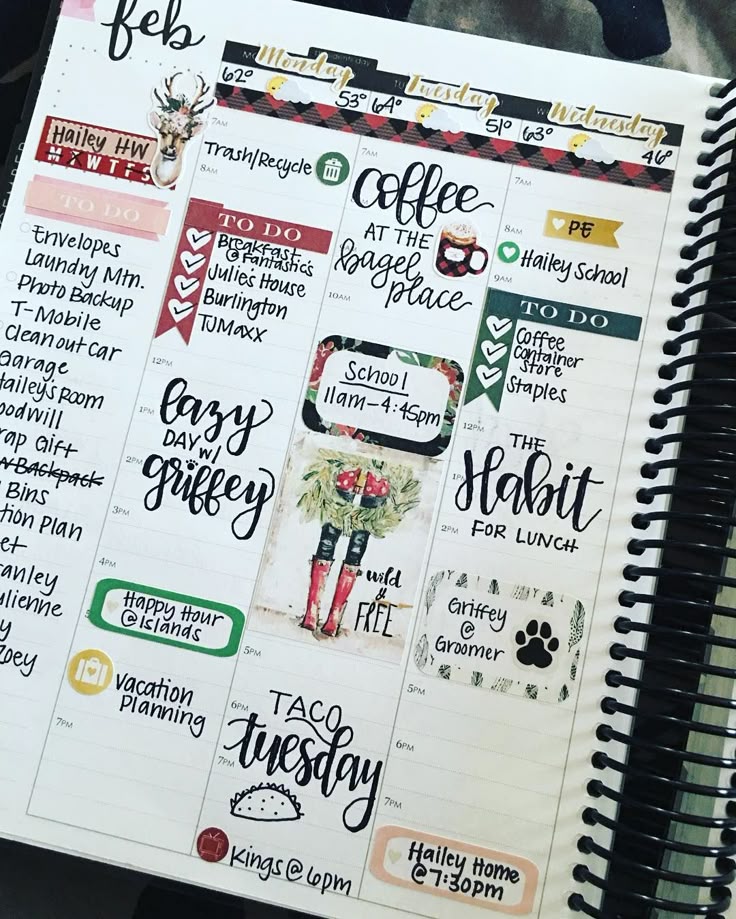 feb
Hailey HW
M X W T F S
TO DO
Envelopes
Laundry Mtn.
Photo Backup
T-Mobile
Clean out car
Garage
Hailey's Room
Gift
Backpack
Bins
Plan
Monday
62° 53°
7AM
8AM
Trash/Recycle
TO DO
Breakfast
@ Fantastic's
Julie's House
Burlington
TJMaxx
12PM
1PM
lazy
DAY W/
2PM
griffey
3PM
4PM
5
Happy Hour
@Islands
Vacation
Planning
7PM
Tuesday
64° 51°
7AM
Coffee
AT THE
Bagel
place
10AM
School
11am-4:45pm
wild
&
FREE
5PM
6PM
TACO
tuesday
7PM
Kings @ 6pm
Wednesday
63° 46°
7AM
PE
8AM
Hailey School
9AM
TO DO
Coffee
Container
Store
Staples
12PM
THE
1PM
Habit
2PM
FOR LUNCH
Griffey
@
Groomer
5PM
6PM
7PM
Hailey Home
@7:30pm